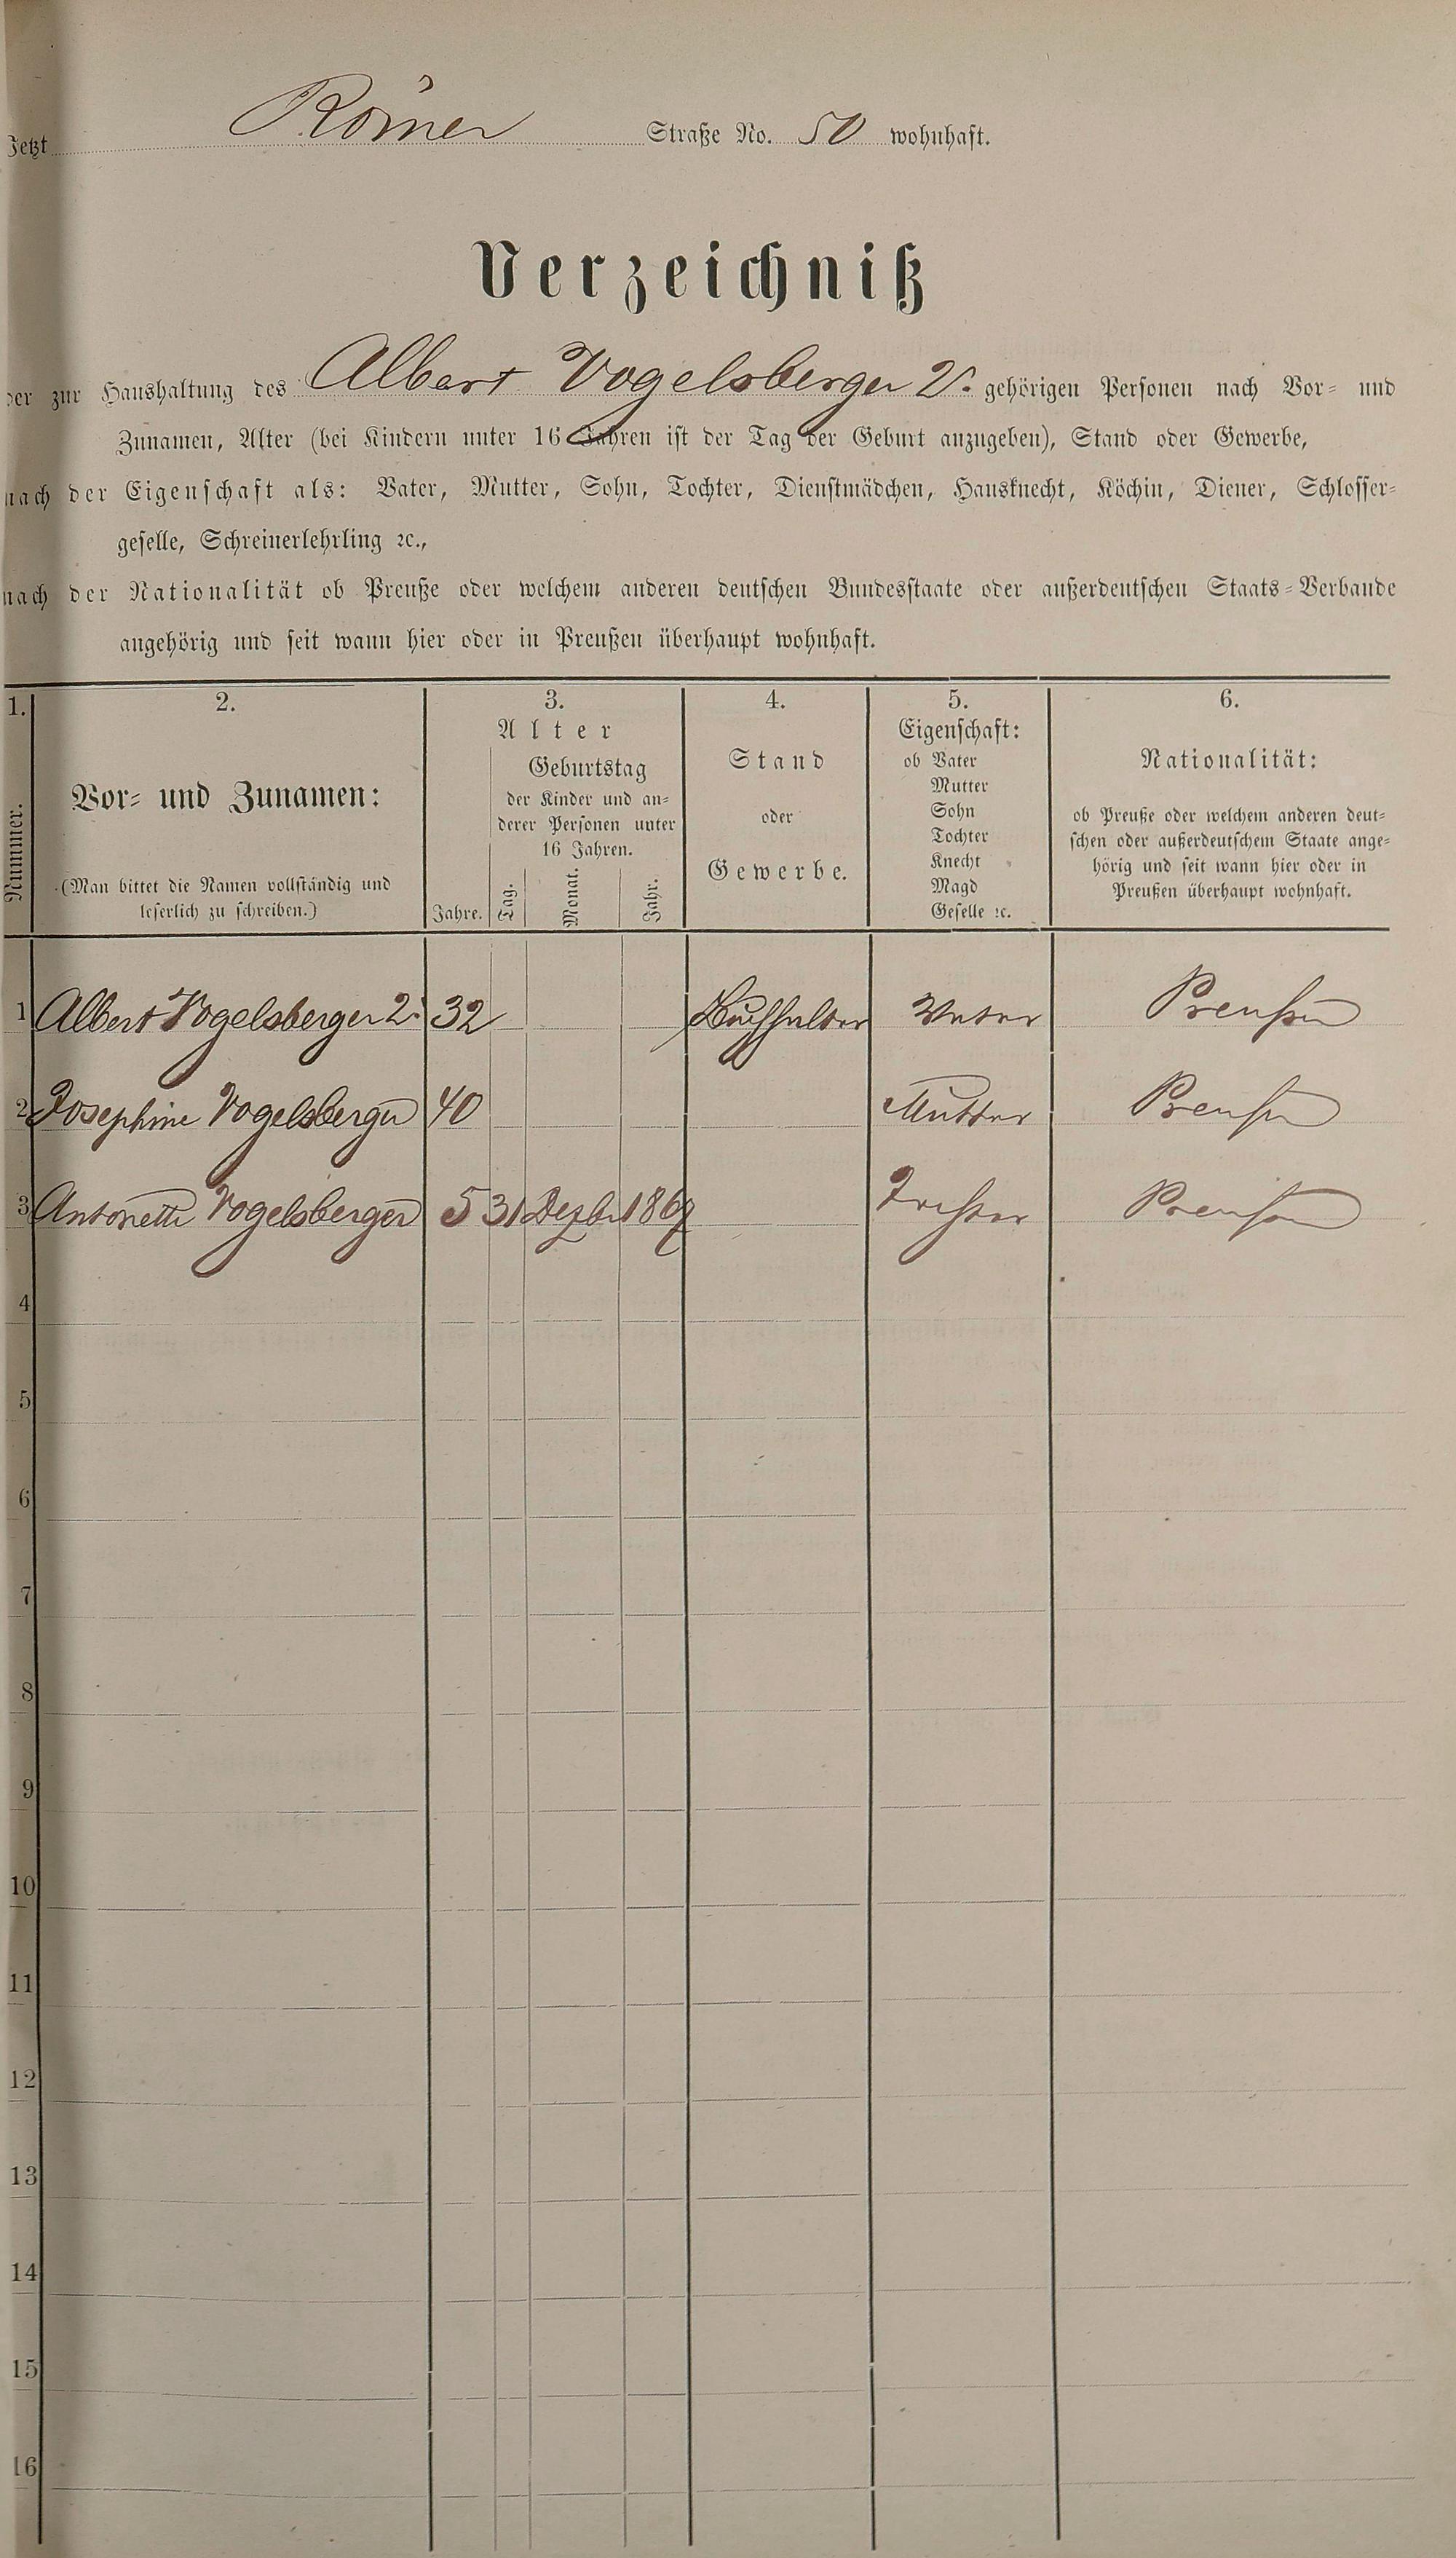 Jetzt Römer Straße No. 50 wohnhaft.
Verzeichniß
der zur Haushaltung des Albert Vogelsberger 2r. gehörigen Personen nach Vor- und
Zunamen, Alter (bei Kindern unter 16 Jahren ist der Tag der Geburt anzugeben), Stand oder Gewerbe,
nach der Eigenschaft als: Vater, Mutter, Sohn, Tochter, Dienstmädchen, Hausknecht, Köchin, Diener, Schlosser-
geselle, Schreinerlehrling ꝛc.,
nach der Nationalität ob Preuße oder welchem anderen deutschen Bundesstaate oder außerdeutschen Staats-Verbande
angehörig und seit wann hier oder in Preußen überhaupt wohnhaft.
1. 2. 3. 4. 5. 6.
Nummer.
Vor- und Zunamen:
(Man bittet die Namen vollständig und
leserlich zu schreiben.)
Alter
Geburtstag
der Kinder und an-
derer Personen unter
16 Jahren.
Jahre. Tag. Monat. Jahr.
Stand
oder
Gewerbe.
Eigenschaft:
ob Vater
Mutter
Sohn
Tochter
Knecht
Magd
Geselle ꝛc.
Nationalität:
ob Preuße oder welchem anderen deut-
schen oder außerdeutschem Staate ange-
hörig und seit wann hier oder in
Preußen überhaupt wohnhaft.
1 Albert Vogelsberger 2r 32 Buchhalter Vater Preußen
2 Josephine Vogelsberger 40 Mutter Preußen
3 Antonette Vogelsberger 5 31 Dezbr Tochter Preußen
4
5
6
7
8
9
10
11
12
13
14
15
16